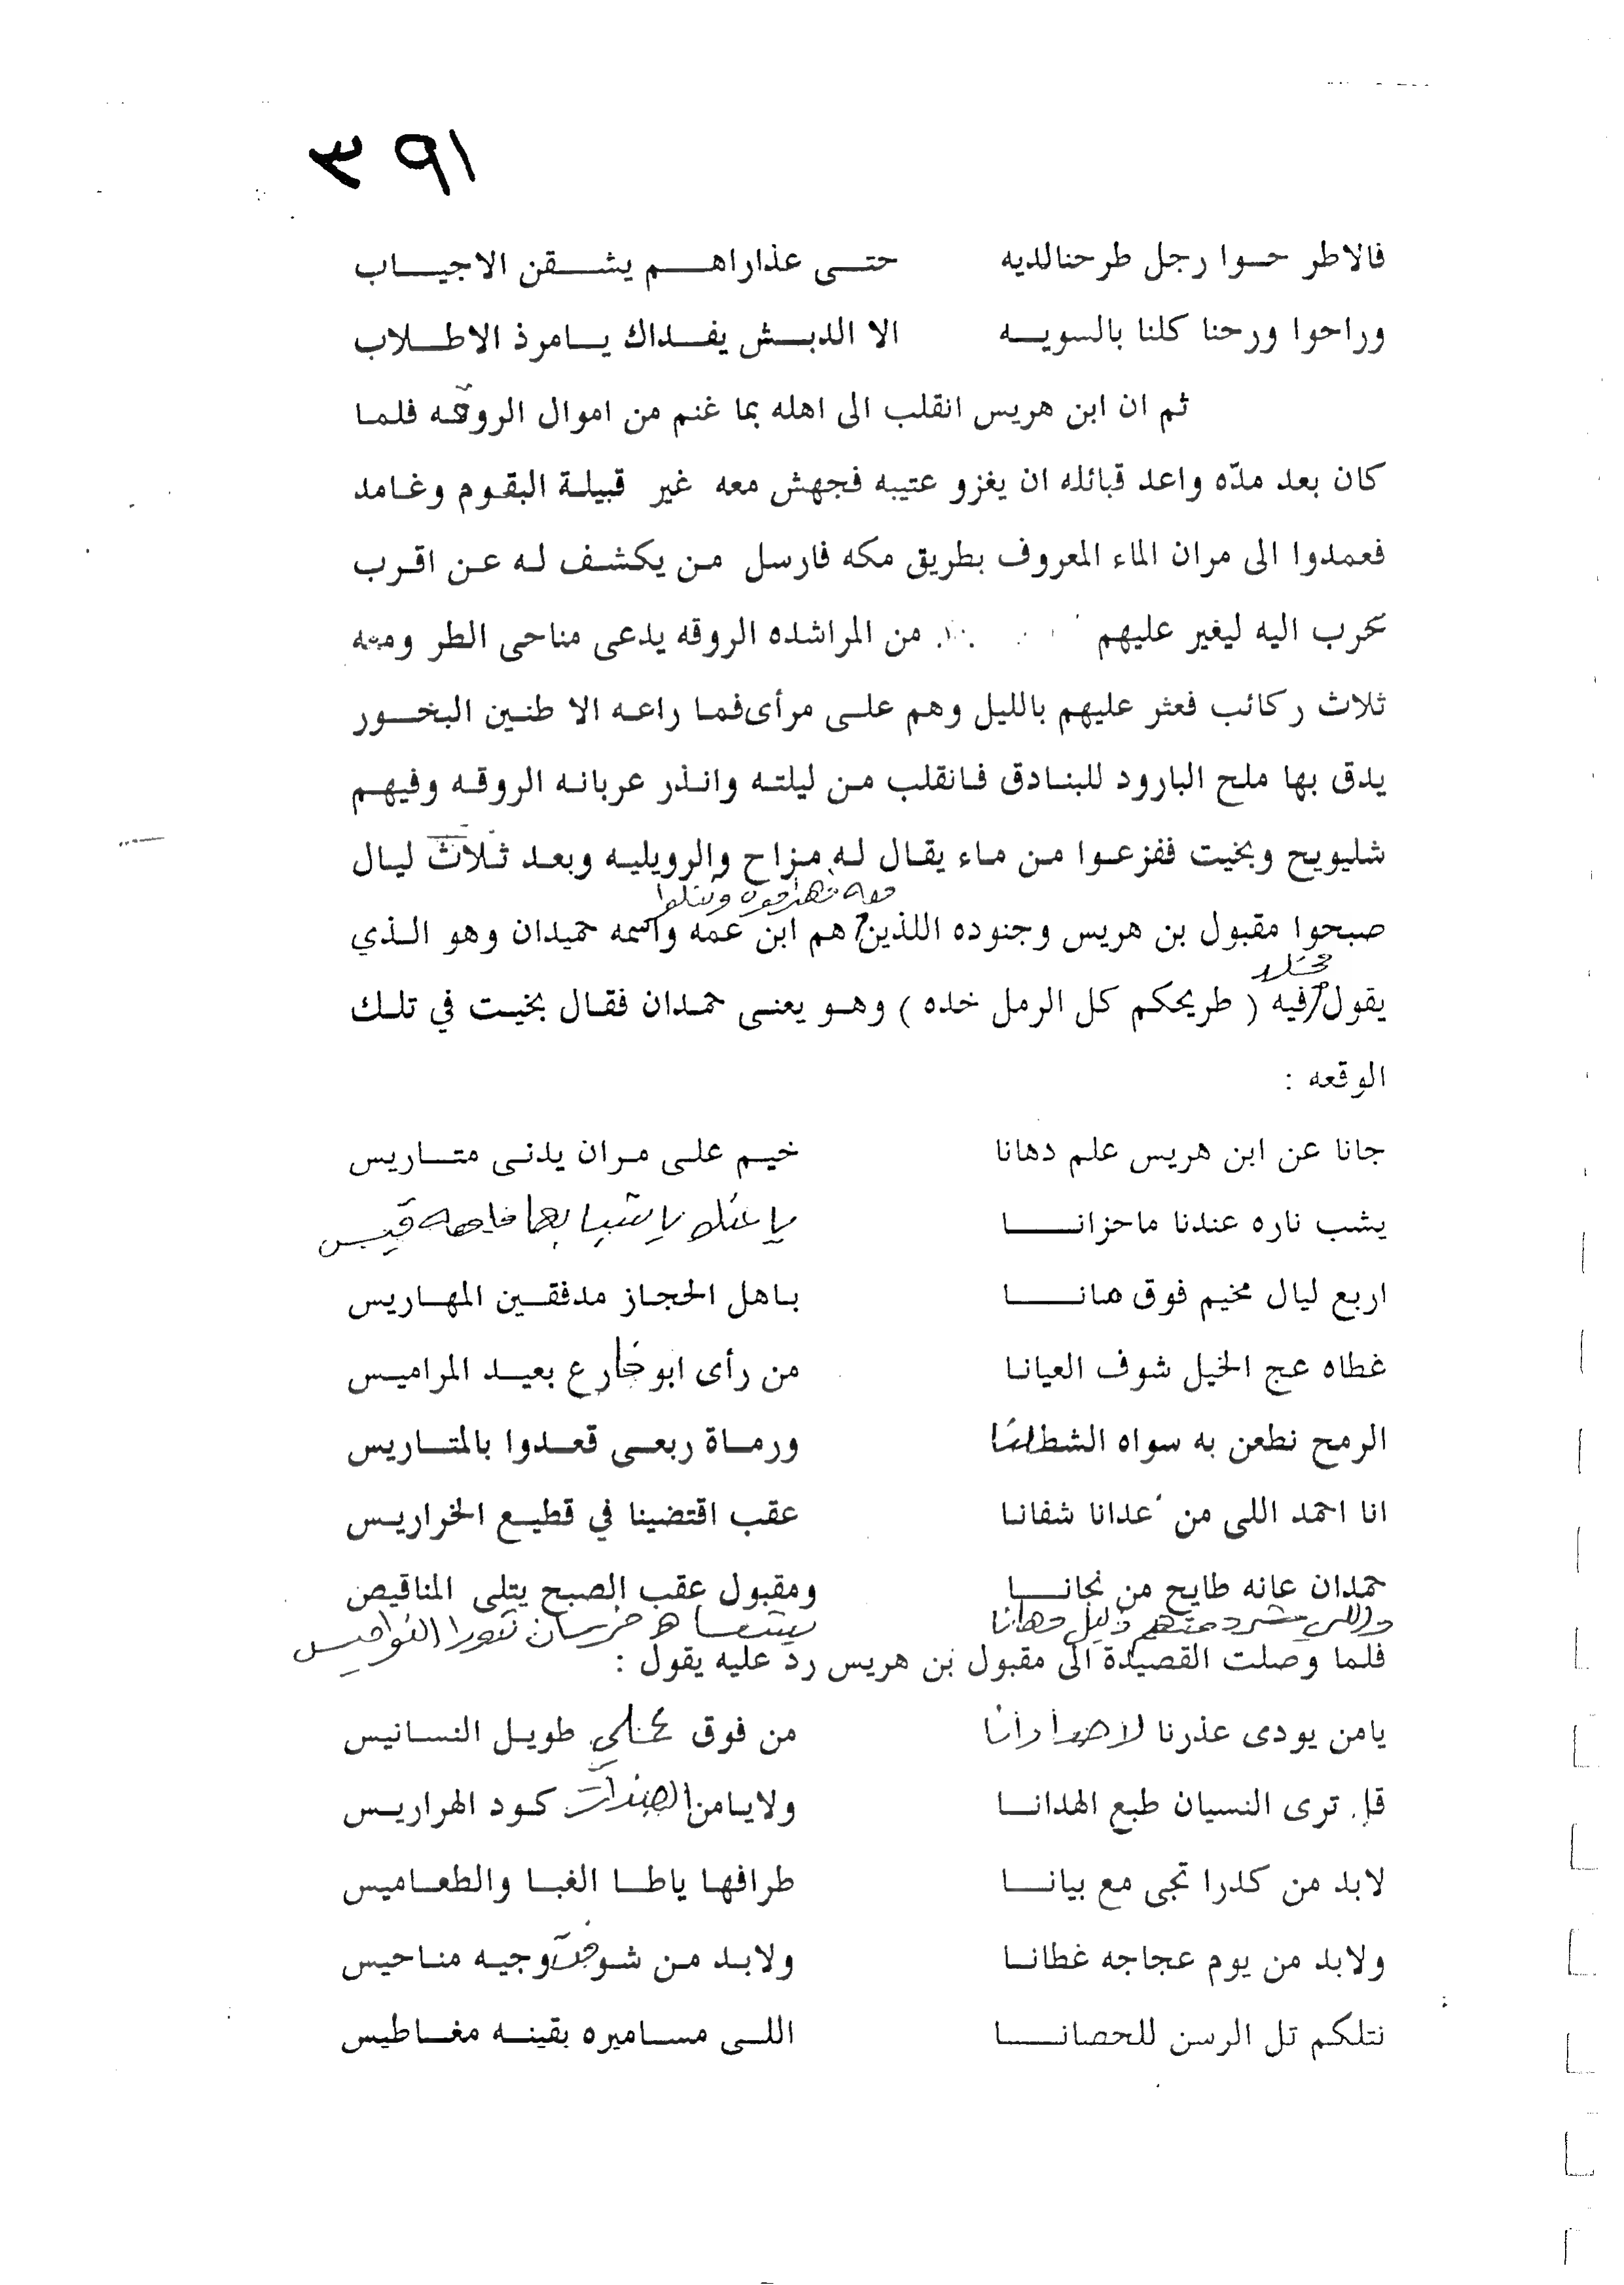 ٣٩١
فالاطر حوا رجل طرحنالديه حتى عذاراهم يشقن الاجياب
وراحوا ورحنا كلنا بالسويه الا الدبش يفداك يامرذ الاطلاب
ثم ان ابن هريس انقلب الى اهله بما غنم من اموال الروقه فلما
كان بعد مدّه واعد قبائله ان يغزو عتيبه فجهش معه غير قبيلة البقوم وغامد
فعمدوا الى مران الماء المعروف بطريق مكه فارسل من يكشف له عن اقرب
عرب اليه ليغير عليهم من المراشده الروقه يدعى مناحى الطر ومعه
ثلاث ركائب فعثر عليهم بالليل وهم على مرأى فما راعه الا طنين البخور
يدق بها ملح البارود للبنادق فانقلب من ليلته وانذر عربانه الروقه وفيهم
شليويح وبخيت ففزعوا من ماء يقال له مزاح والرويليه وبعد ثلاث ليال
معه فهزموه وقتلوا
صبحوا مقبول بن هريس وجنوده اللذين هم ابن عمه واسمه حميدان وهو الذي
مخلد
يقول فيه ( طريحكم كل الرمل خده ) وهو يعنى حمدان فقال بخيت في تلك
الوقعه :
جانا عن ابن هريس علم دهانا خيم على مران يدنى متاريس
يشب ناره عندنا ماحزانا يا شيبا بها
اربع ليال مخيم فوق مانا باهل الحجاز مدفقين المهاريس
غطاه عج الخيل شوف العيانا من رأى ابو جارع بعيد المراميس
الرمح نطعن به سواه الشطانا ورماة ربعى قعدوا بالمتاريس
انا احمد اللى من عدانا شفانا عقب اقتضينا في قطيع الخراريس
حمدان عانه طايح من نجانا ومقبول عقب الصبح يتلى المناقيص
واللي شرد منهم ذليل مهانا فرسان النواميس
فلما وصلت القصيدة الى مقبول بن هريس رد عليه يقول :
يامن يودى عذرنا من فوق طويل النسانيس
قل ترى النسيان طبع الهدانا ولايامن كود الهراريس
لابد من كدرا تجى مع بيانا طرافها ياطا الغبا والطعاميس
ولابد من يوم عجاجه غطانا ولابد من وجيه مناحيس
نتلكم تل الرسن للحصانا اللى مساميره بقينه مغاطيس